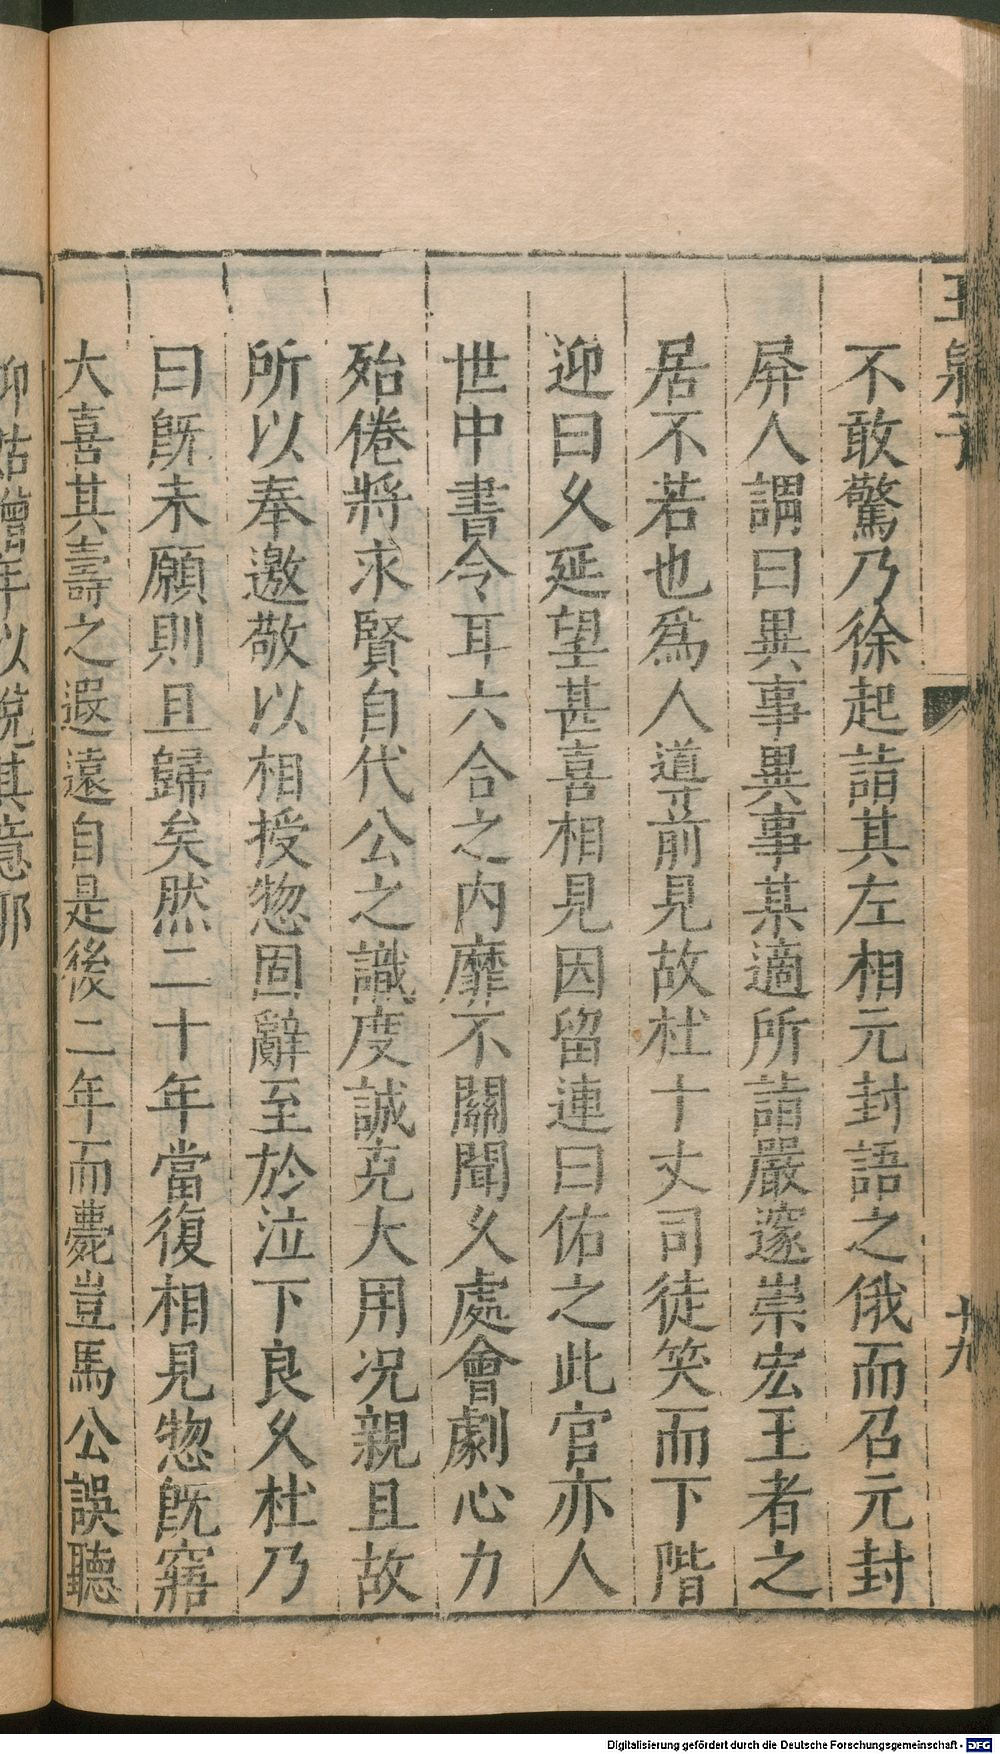 不敢驚乃徐起詣其左相元封語之俄而召元封
屏人謂曰異事異事某適所詣嚴邃崇宏王者之
居不若也爲人導前見故杜十丈司徒笑而下階
迎曰久延望甚喜相見因留連曰佑之此官亦人
世中書令耳六合之内靡不關聞久處會劇心力
殆倦將求賢自代公之識度誠克大用况親且故
所以奉邀敬以相授惣固辭至於泣下良久杜乃
曰旣未願則且歸矣然二十年當復相見惣旣寤
大喜其壽之遐遠自是後二年而薨豈馬公誤聽
抑姑增年以悅其意耶
玉泉子
十九
Digitalisierung gefördert durch die Deutsche Forschungsgemeinschaft - DFG